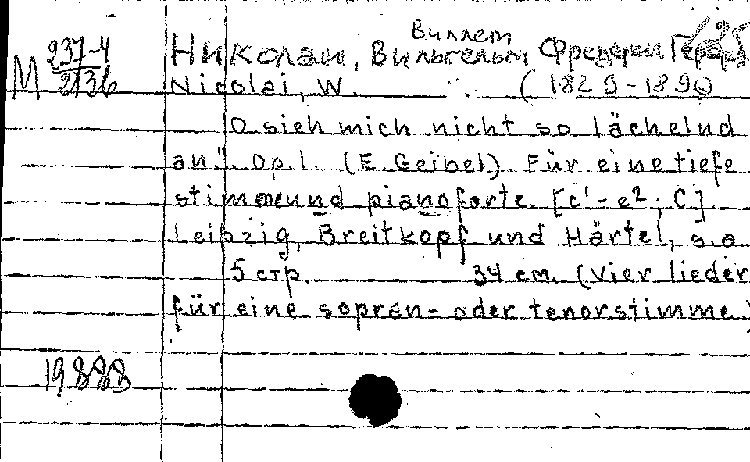 Виллем
М 237-4
2136
Николаи, Вильгельм Фредерик
Nicolai, W. (1829-1896)
O sieh mich nicht so lächelnd
an". Op.1. (E. Geibel). Für eine tiefe
stimme und pianoforte. [c'-e²; C].
Leipzig, Breitkopf und Härtel, s.a.
5 стр. 34 cm. (Vier lieder
für eine sopran- oder tenorstimme)
19888